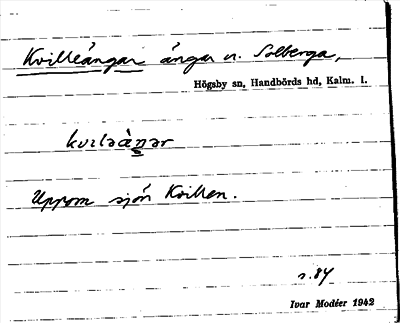 Kvilleängar ängar u. Solberga,
Högsby sn, Handbörds hd, Kalm. l.
kvıləàŋər
Uppom sjön Kvillen.
s. 84
Ivar Modéer 1942